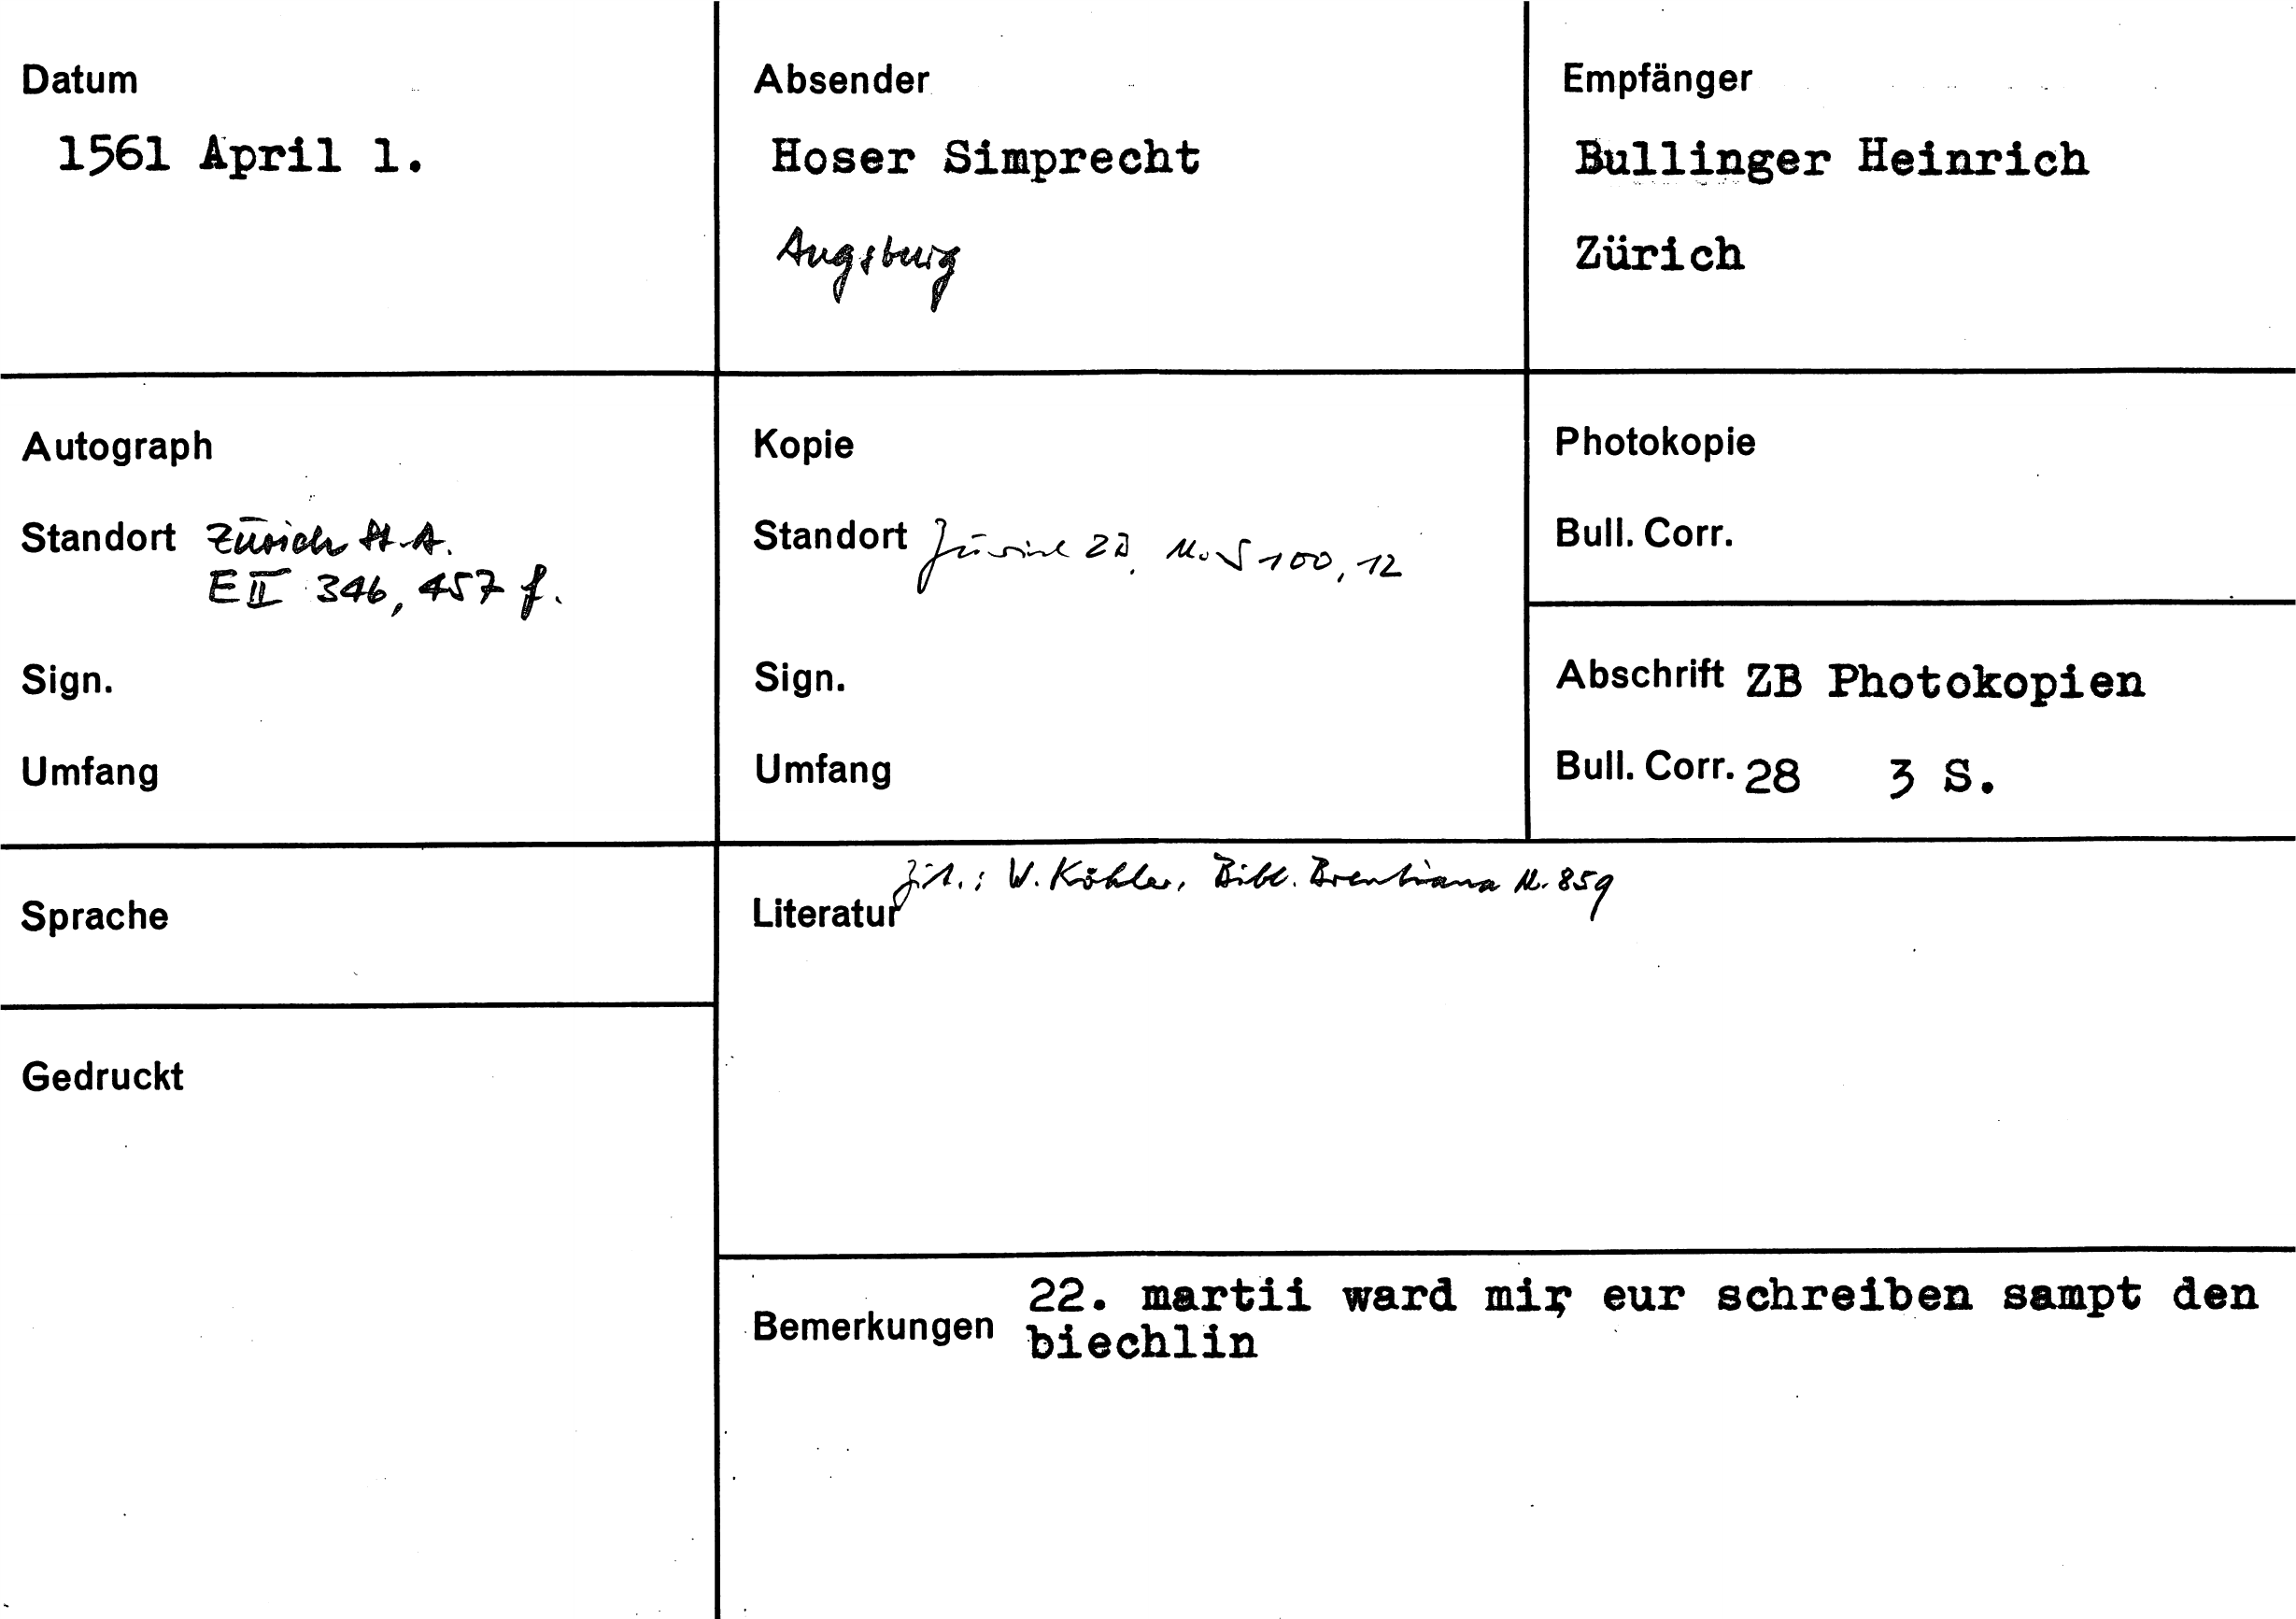 Datum
1561 April 1.
Absender
Hoser Simprecht
Augsburg
Empfänger
Bullinger Heinrich
Zürich
Autograph
Standort Zürich StA.
E II 346, 457 f.
Sign.
Umfang
Kopie
Standort Zürich ZB, Ms S 100, 12
Sign.
Umfang
Photokopie
Bull. Corr.
Abschrift ZB Photokopien
Bull. Corr. 28 3 S.
Sprache
Gedruckt
Literatur Zit.: W. Köhler, Bibl. Brentiana Nr. 859
Bemerkungen 22. martii ward mir, eur schreiben sampt den
biechlin